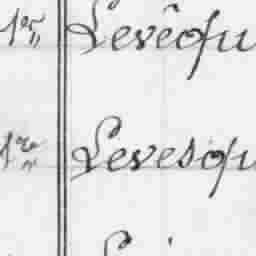 1er Levêqu
1er Levesqu